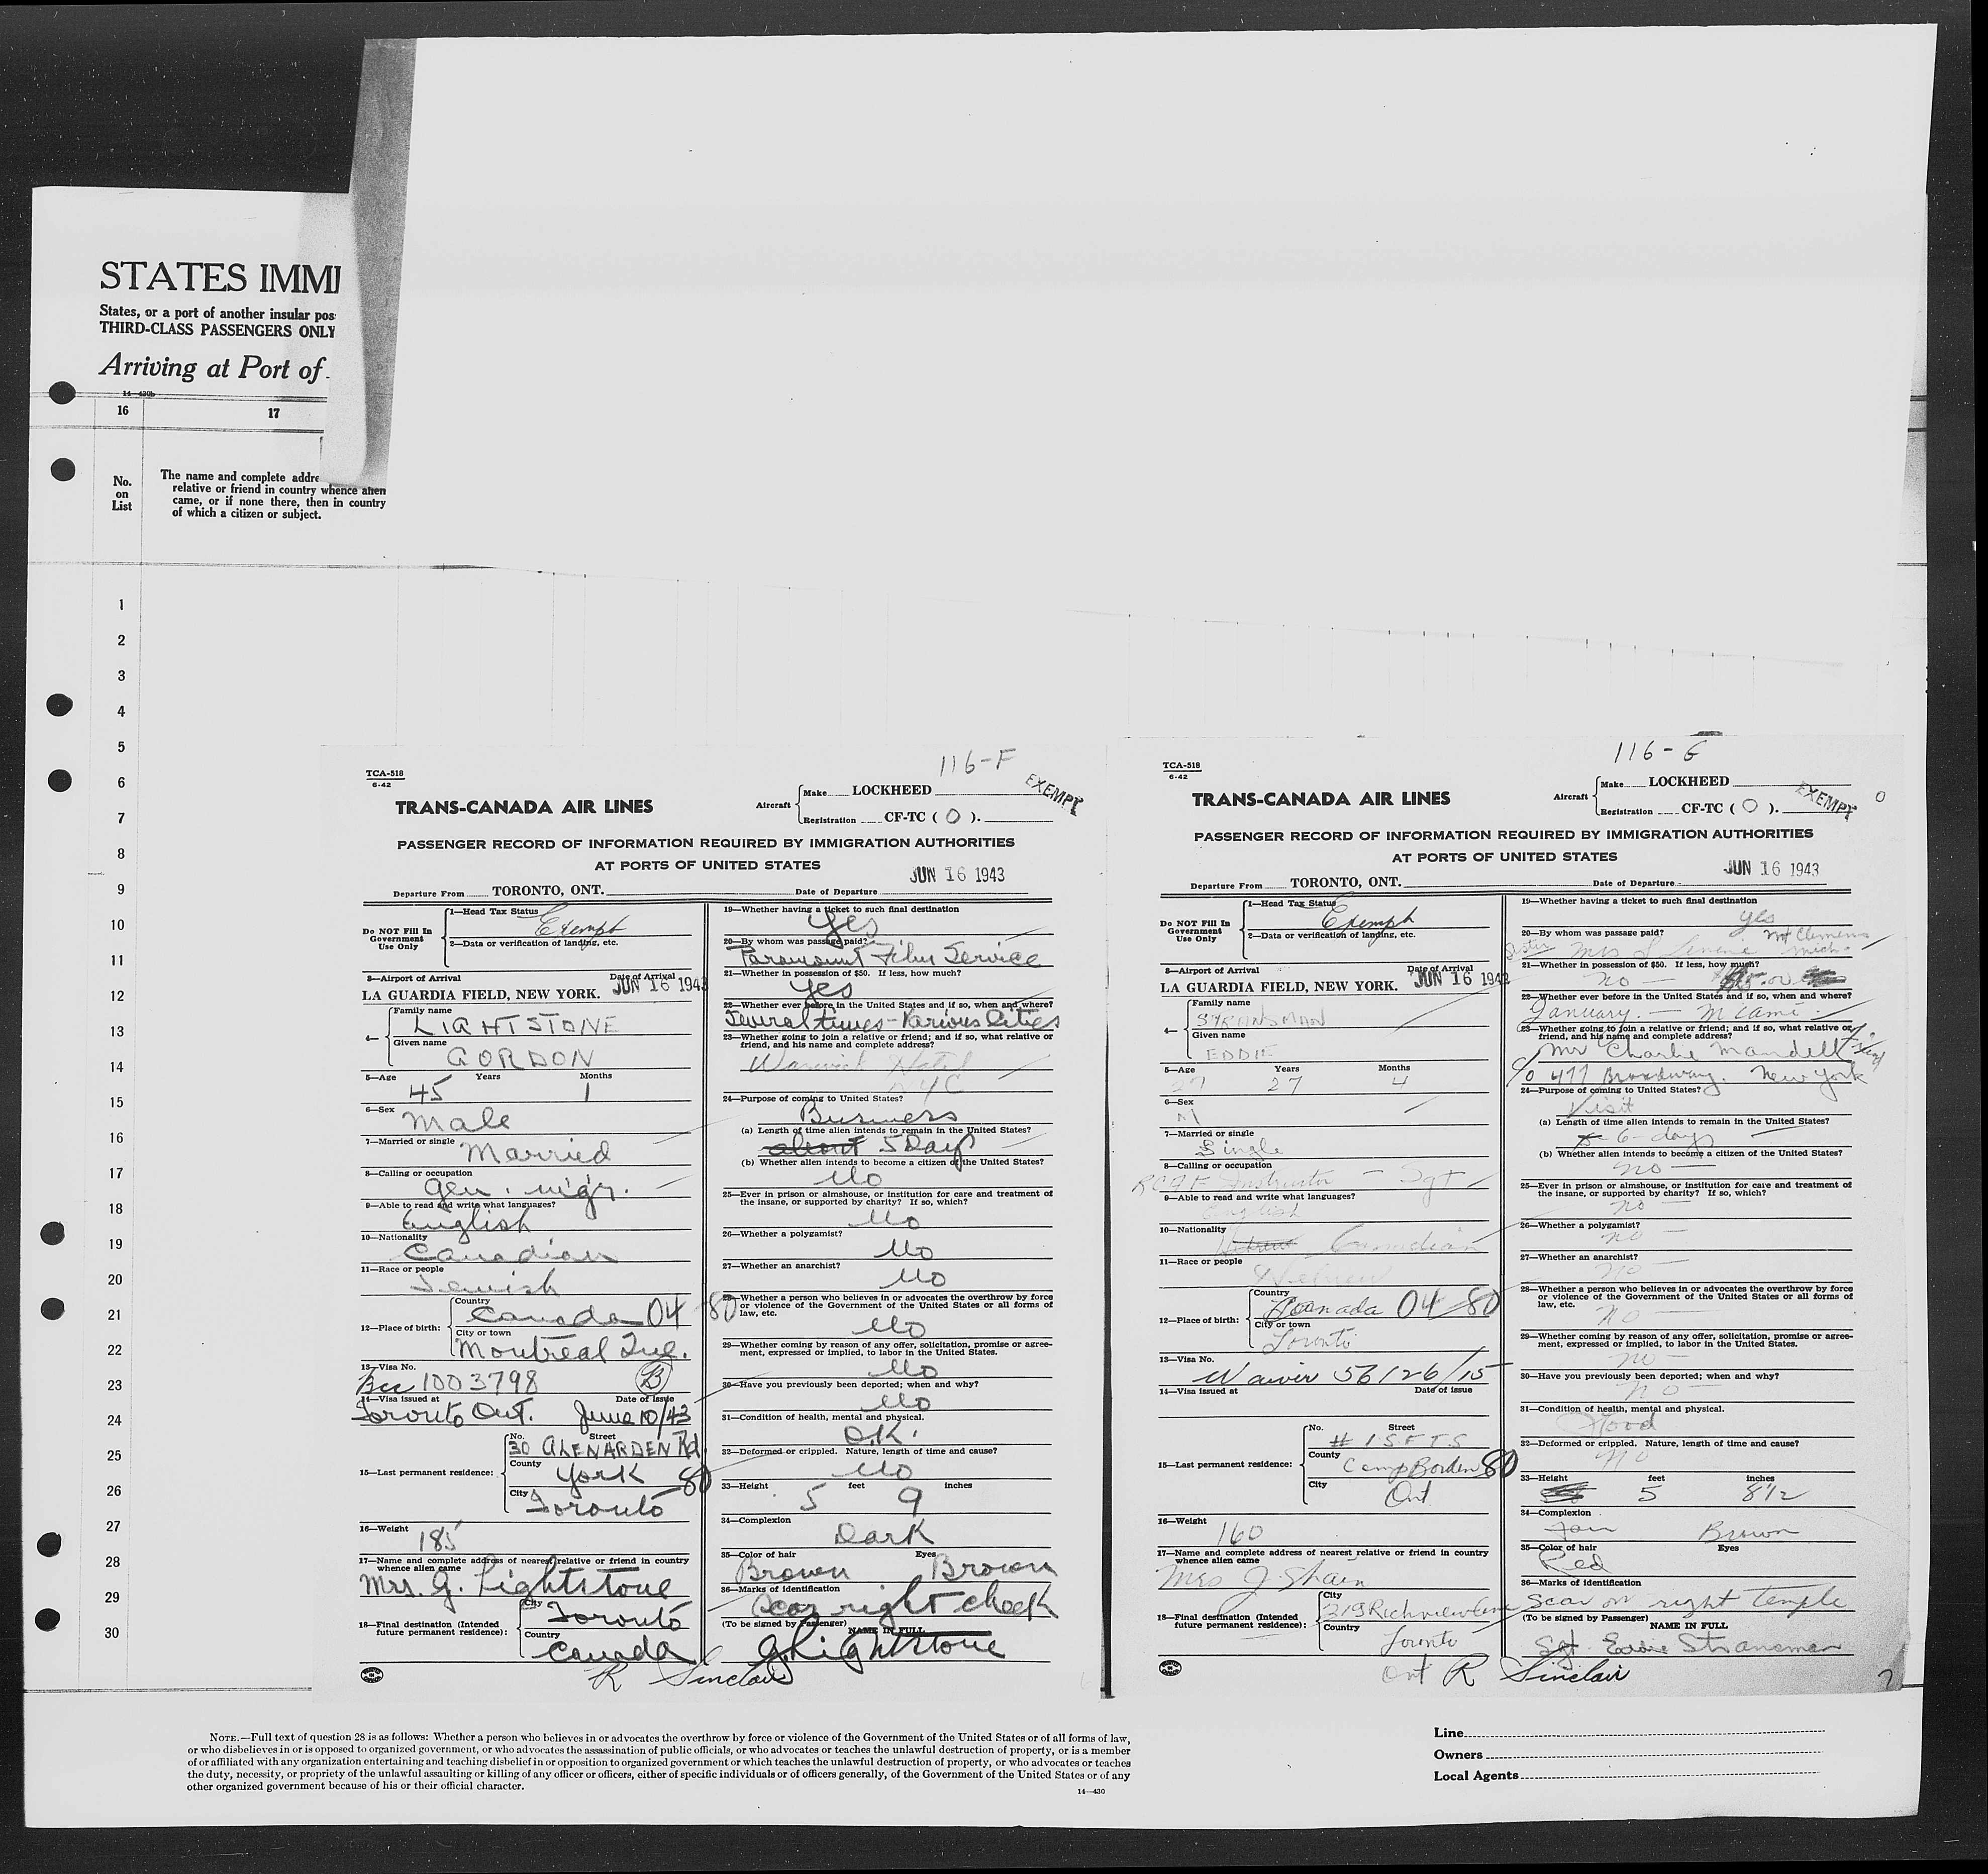 STATES IMMI
States, or a port of another insular pos
THIRD-CLASS PASSENGERS ONLY
Arriving at Port of
14—430b
16
17
No.
on
List
The name and complete addre
relative or friend in country whence alien
came, or if none there, then in country
of which a citizen or subject.
1
2
3
4
5
6
7
8
9
10
11
12
13
14
15
16
17
18
19
20
21
22
23
24
25
26
27
28
29
30
116-F
TCA-518
6-42
TRANS-CANADA AIR LINES
Aircraft
Make LOCKHEED
EXEMPT
Registration CF-TC ( O ).
PASSENGER RECORD OF INFORMATION REQUIRED BY IMMIGRATION AUTHORITIES
AT PORTS OF UNITED STATES
JUN 16 1943
Departure From TORONTO, ONT. Date of Departure
Do NOT Fill In
Government
Use Only
1—Head Tax Status Exempt
2—Data or verification of landing, etc.
3—Airport of Arrival Date of Arrival
LA GUARDIA FIELD, NEW YORK. JUN 16 1943
4— Family name
LIGHTSTONE
Given name
GORDON
5—Age Years Months
45 1
6—Sex
Male
7—Married or single
Married
8—Calling or occupation
Gen. mgr.
9—Able to read and write what languages?
English
10—Nationality
Canadian
11—Race or people
Jewish
12—Place of birth: Country
Canada 04-80
City or town
Montreal Que.
13—Visa No.
1003798 B
14—Visa issued at Date of Issue
Toronto Ont. June 10/43
15—Last permanent residence: No. Street
30 GLENARDEN Rd
County
York 80
City
Toronto
16—Weight
185
17—Name and complete address of nearest relative or friend in country
whence alien came
Mrs. G. Lightstone
18—Final destination (Intended
future permanent residence):
City
Toronto
Country
Canada
R Sinclair
19—Whether having a ticket to such final destination
Yes
20—By whom was passage paid?
Paramount Film Service
21—Whether in possession of $50. If less, how much?
Yes
22—Whether ever before in the United States and if so, when and where?
Several times - Various Cities
23—Whether going to join a relative or friend; and if so, what relative or
friend, and his name and complete address?
Warwick Hotel
NYC
24—Purpose of coming to United States?
Business
(a) Length of time alien intends to remain in the United States?
about 5 Days
(b) Whether alien intends to become a citizen of the United States?
No
25—Ever in prison or almshouse, or institution for care and treatment of
the insane, or supported by charity? If so, which?
No
26—Whether a polygamist?
No
27—Whether an anarchist?
No
28—Whether a person who believes in or advocates the overthrow by force
or violence of the Government of the United States or all forms of
law, etc.
No
29—Whether coming by reason of any offer, solicitation, promise or agree-
ment, expressed or implied, to labor in the United States.
No
30—Have you previously been deported; when and why?
No
31—Condition of health, mental and physical.
O.K.
32—Deformed or crippled. Nature, length of time and cause?
No
33—Height feet inches
5 9
34—Complexion
Dark
35—Color of hair Eyes
Brown Brown
36—Marks of identification
Scar right cheek
(To be signed by Passenger) NAME IN FULL
G Lightstone
116-G
TCA-518
6-42
TRANS-CANADA AIR LINES
Aircraft
Make LOCKHEED
EXEMPT
Registration CF-TC ( O ).
PASSENGER RECORD OF INFORMATION REQUIRED BY IMMIGRATION AUTHORITIES
AT PORTS OF UNITED STATES
JUN 16 1943
Departure From TORONTO, ONT. Date of Departure
Do NOT Fill In
Government
Use Only
1—Head Tax Status Exempt
2—Data or verification of landing, etc.
3—Airport of Arrival Date of Arrival
LA GUARDIA FIELD, NEW YORK. JUN 16 1943
4— Family name
STRANSMAN
Given name
EDDIE
5—Age Years Months
27 27 4
6—Sex
M
7—Married or single
Single
8—Calling or occupation
RCAF Instructor - Sgt
9—Able to read and write what languages?
English
10—Nationality
Canadian
11—Race or people
Hebrew
12—Place of birth: Country
Canada 04-80
City or town
Toronto
13—Visa No.
Waiver 56126/15
14—Visa issued at Date of issue
15—Last permanent residence: No. Street
# 1 SFTS
County
Camp Borden 80
City
Ont
16—Weight
160
17—Name and complete address of nearest relative or friend in country
whence alien came
Mrs J Shain
18—Final destination (Intended
future permanent residence):
City
219 Richview
Country
Toronto
Ont R Sinclair
19—Whether having a ticket to such final destination
yes
20—By whom was passage paid?
Mt Clemens
Sister Mrs S Mich.
21—Whether in possession of $50. If less, how much?
no —
22—Whether ever before in the United States and if so, when and where?
January. — Miami.
23—Whether going to join a relative or friend; and if so, what relative or
friend, and his name and complete address?
Mr Charlie Mandell friend
c/o 477 Broadway. New York
24—Purpose of coming to United States?
Visit
(a) Length of time alien intends to remain in the United States?
6 - days
(b) Whether alien intends to become a citizen of the United States?
no —
25—Ever in prison or almshouse, or institution for care and treatment of
the insane, or supported by charity? If so, which?
no —
26—Whether a polygamist?
no
27—Whether an anarchist?
no
28—Whether a person who believes in or advocates the overthrow by force
or violence of the Government of the United States or all forms of
law, etc.
no
29—Whether coming by reason of any offer, solicitation, promise or agree-
ment, expressed or implied, to labor in the United States.
no —
30—Have you previously been deported; when and why?
no —
31—Condition of health, mental and physical.
Good
32—Deformed or crippled. Nature, length of time and cause?
no
33—Height feet inches
5 8 1/2
34—Complexion
Fair Brown
35—Color of hair Eyes
Red
36—Marks of identification
Scar on right temple
(To be signed by Passenger) NAME IN FULL
Sgt. Eddie Stransman
NOTE.—Full text of question 28 is as follows: Whether a person who believes in or advocates the overthrow by force or violence of the Government of the United States or of all forms of law,
or who disbelieves in or is opposed to organized government, or who advocates the assassination of public officials, or who advocates or teaches the unlawful destruction of property, or is a member
of or affiliated with any organization entertaining and teaching disbelief in or opposition to organized government or which teaches the unlawful destruction of property, or who advocates or teaches
the duty, necessity, or propriety of the unlawful assaulting or killing of any officer or officers, either of specific individuals or of officers generally, of the Government of the United States or of any
other organized government because of his or their official character.
14—430
Line
Owners
Local Agents